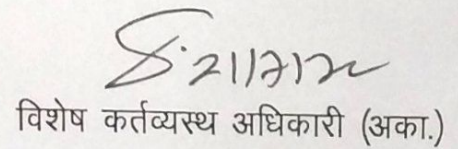 विशेष कर्तव्यस्थ अधिकारी (अका.)